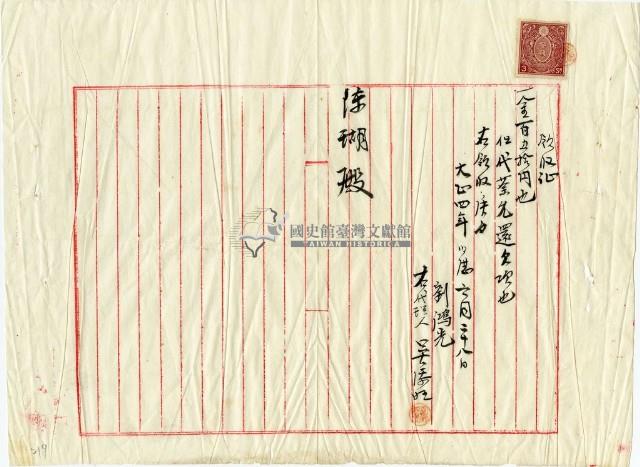 領収証
一金百五拾円也
但代葉先還欠項也
右領収候也
大正四年 旧 六月二十八日
劉鴻光
右代理人 吳添旺
陳瑚殿
國史館臺灣文獻館
TAIWAN HISTORICA
3 Sn
219